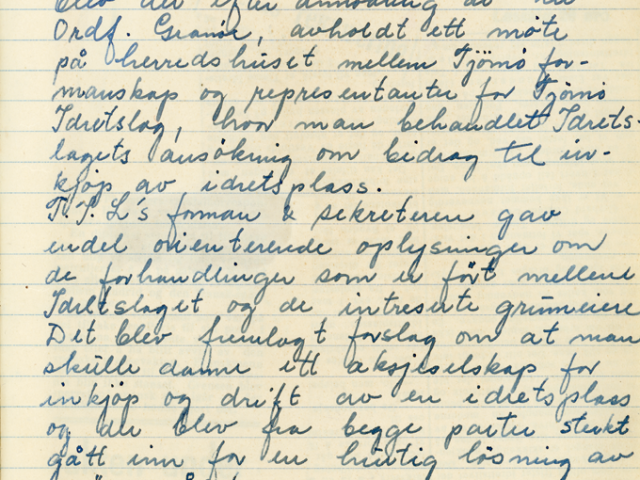 blev der efter anmodning av hr.
Ordf. Granøe, avholdt ett møte
på herredshuset mellem Tjömö for-
manskap og representanter for Tjömö
Idretslag, hvor man behandlet Idrets-
lagets ansökning om bidrag til in-
kjöp av idretsplass.
T.I.L's forman & sekreteren gav
endel orienterende oplysninger om
de forhandlinger som er fört mellem
Idretslaget og de intreserte grunneiere
Det blev fremlagt forslag om at man
skulle danne ett aksjeselskap for
inkjöp og drift av en idretsplass
og der blev fra begge parter sterkt
gått inn for en hurtig lösning av